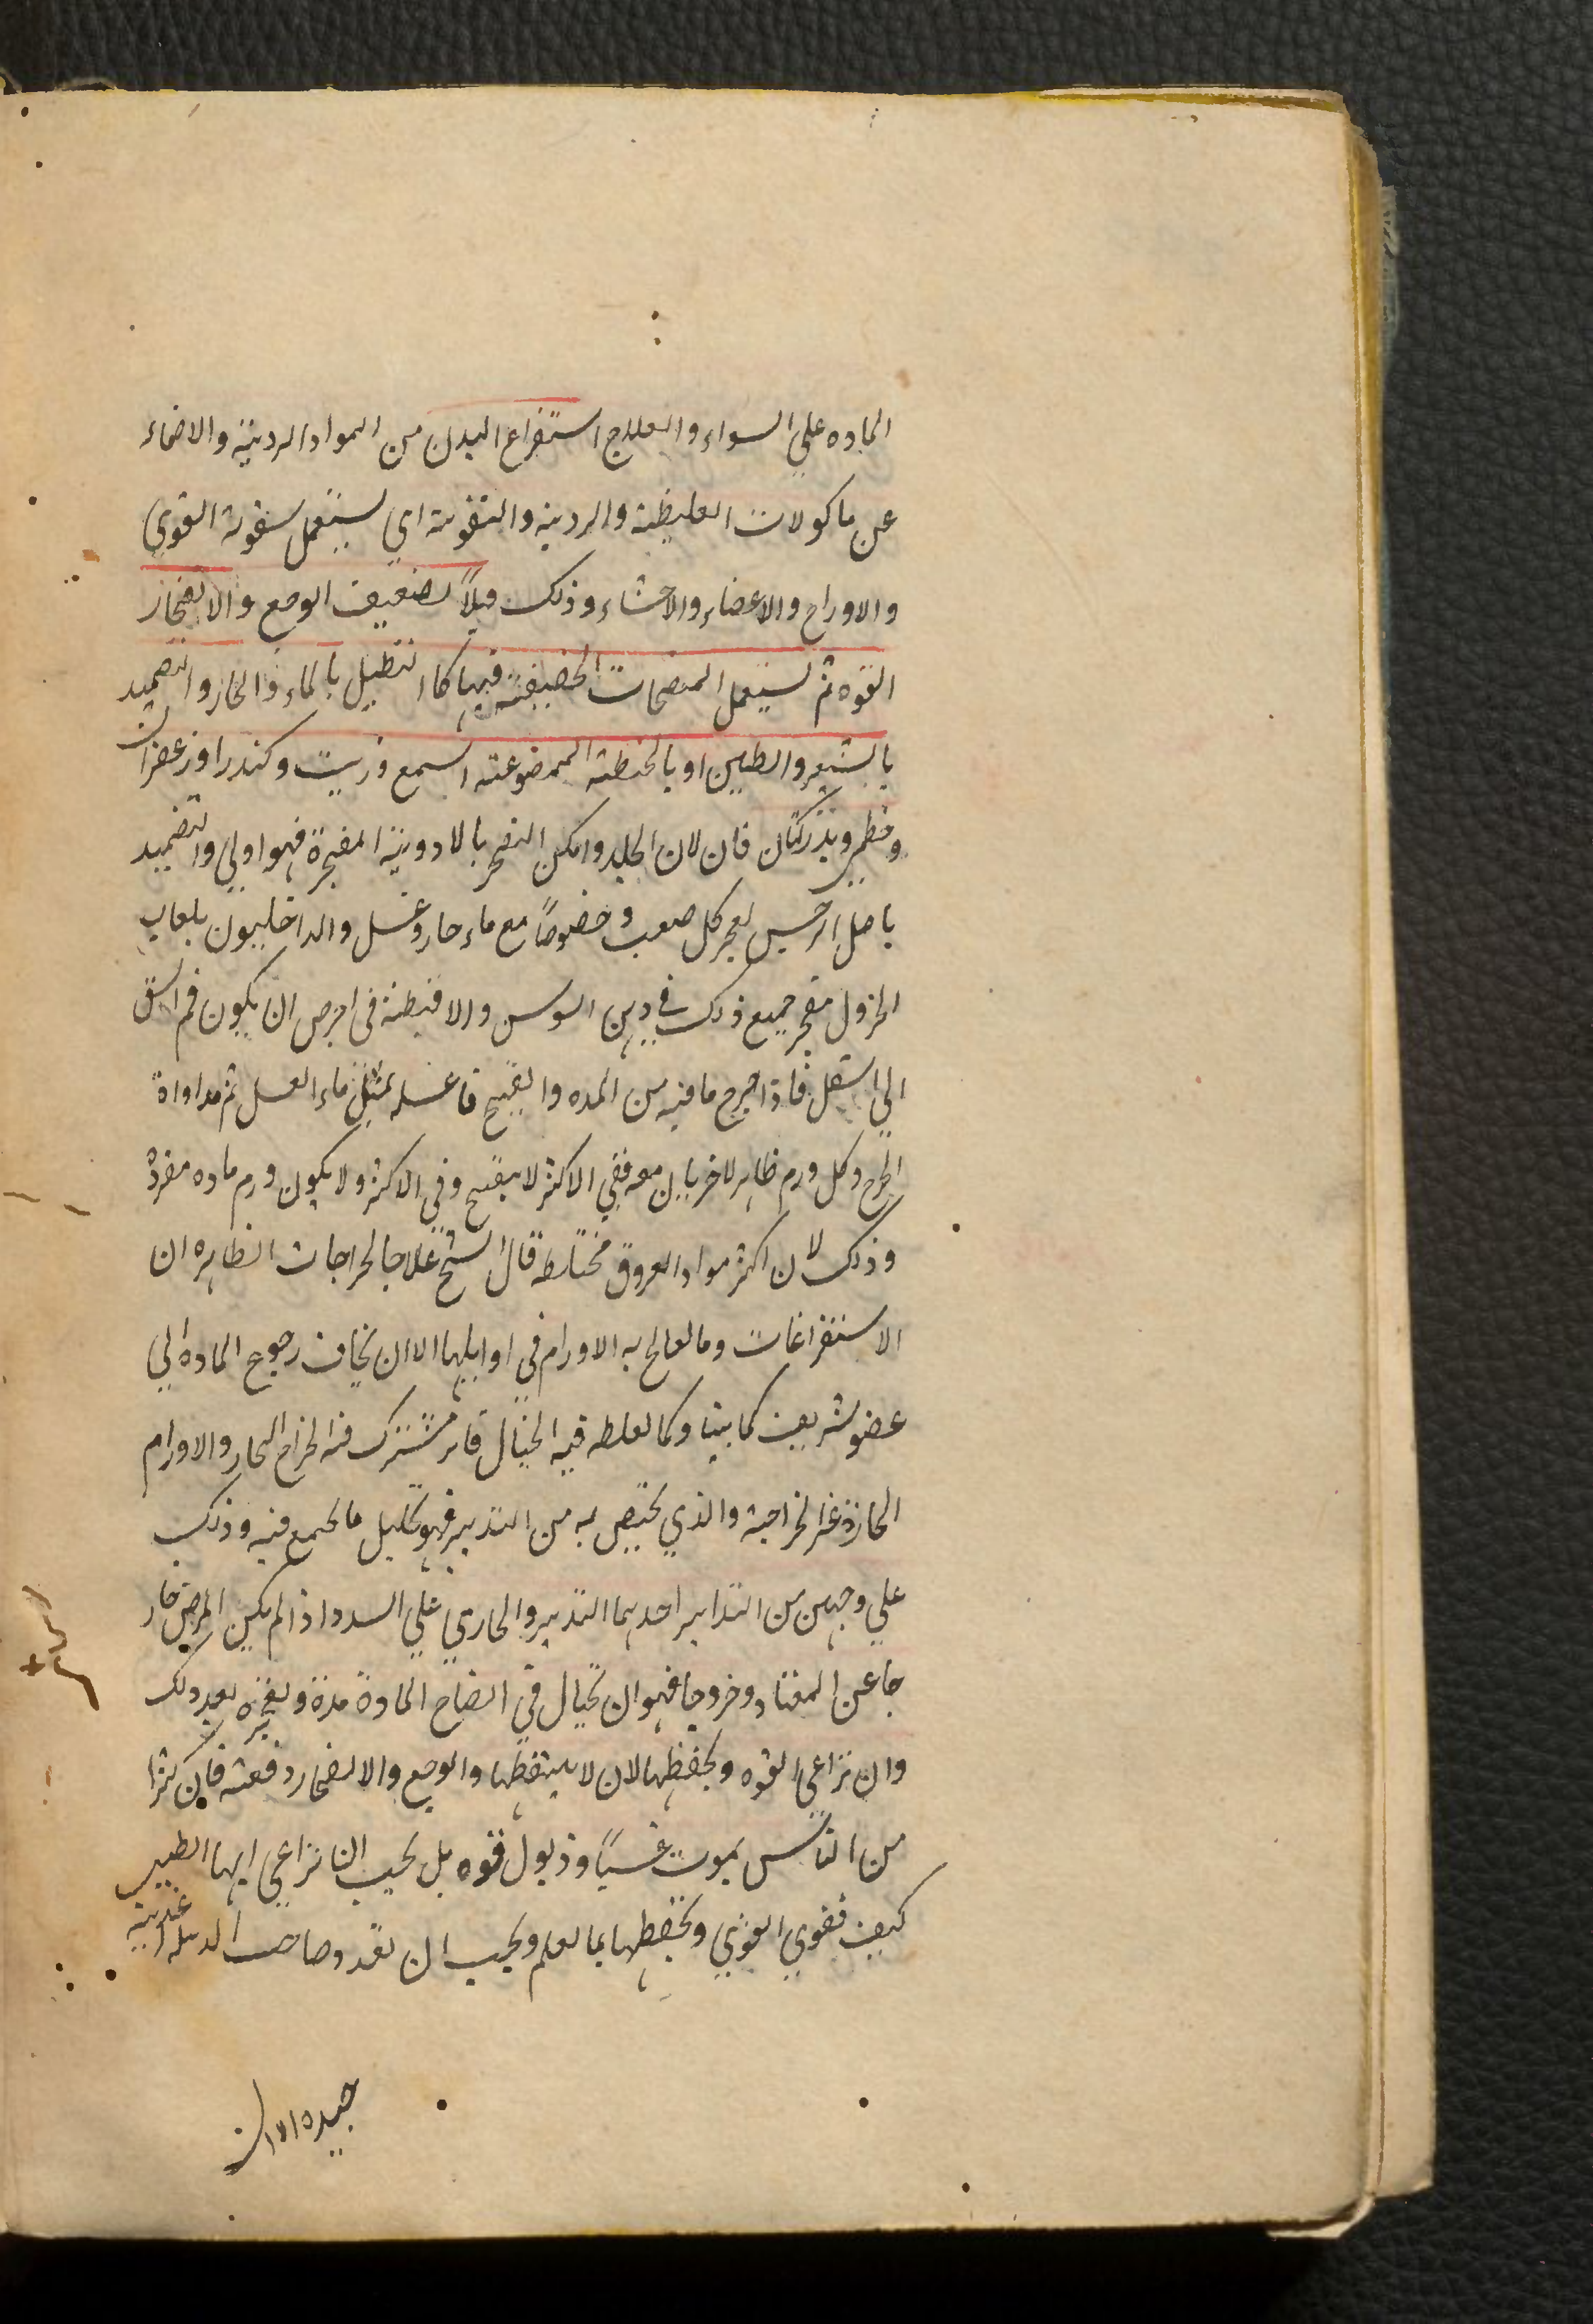 الماده علي السواء والعلاج استفراع البدن من المواد الرديئة والاحماء
عن ماكولات الغليظة والرديه والتقوية اي يستعمل سقوية القوي
والاوراح والاعضاء والاحشاء وذلك ميلاً لضعيف الوجع والانفجار
القوه ثم يستعمل المنضجات الخفيفة فيها كا التنطيل بالماء والحار والتضميد
بالشعير والطين او بالحنطة الممضوغة الشمع وزيت وكندر او زعفران
وخطمي وبذر كتان فان لان الجلد وامكن التفجر بالادوية المفجرة فهو اولي والتضميد
باصل النرجس يفجر كل صعب وخصوصاً مع ماء حار وعسل والداخليون بلعاب
الخزول مفجر جميع ذلك في دهن السوسن والافيطنة في احرص ان يكون فم الشق
الي اسفل فاذا خرج ما فيه من المده والقيح فاغسله بمثل ماء العسل ثم مداواة
الجرح وكل ورم ظاهر لاضربان معه ففي الاكثر لا يقيح وفي الاكثر ولا يكون ورم ماده مفردة
وذلك لان اكثر مواد العروق مختلطه قال الشيخ علاجا الخراجات الظاهره ان
الاستفراغات وما يعالج به الاورام في اوايلها الا ان يخاف رجوع الماده الي
عضو شريف كما بينا وكما لعلطه فيه الخيال فانه مشترك فيه الخراج الحار والاورام
الحارة غير الخراجية والذي يختص به من التدبير فهو تحليل ما يجمع فيه وذلك
علي وجهين من التدابير احدهما التدبير والجاري علي السدد اذا لم يكن المرض خار
جا عن المعتاد وخروجا فهو ان يخيال في انضاج المادة مدة وتفجيره بعد ذلك
وان نراعي القوه ويحفظها لان لا يسقطها والوجع والانفجار دفعته فان كثرا
من الناس يموت غشياً وذبول قوه بل يجب ان نراعي ايها الطبيب
كيف تقوي القوي وتحفظها بما تعلم ويجب ان تغدو صاحب الدبيله اغذية
جيده